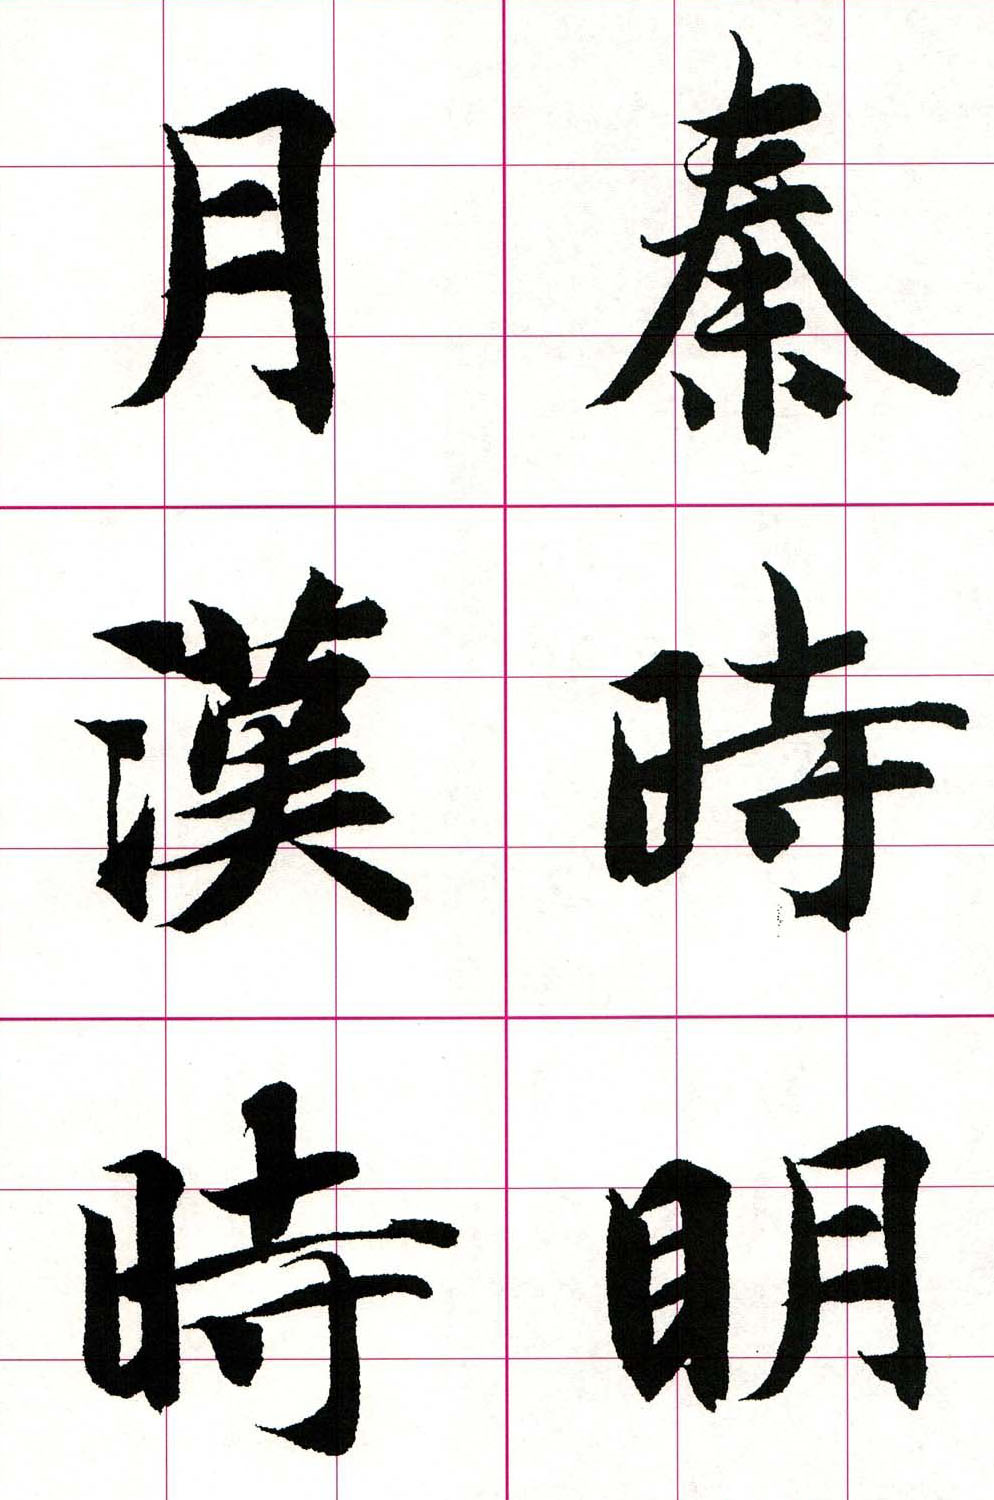 秦時明
月漢時